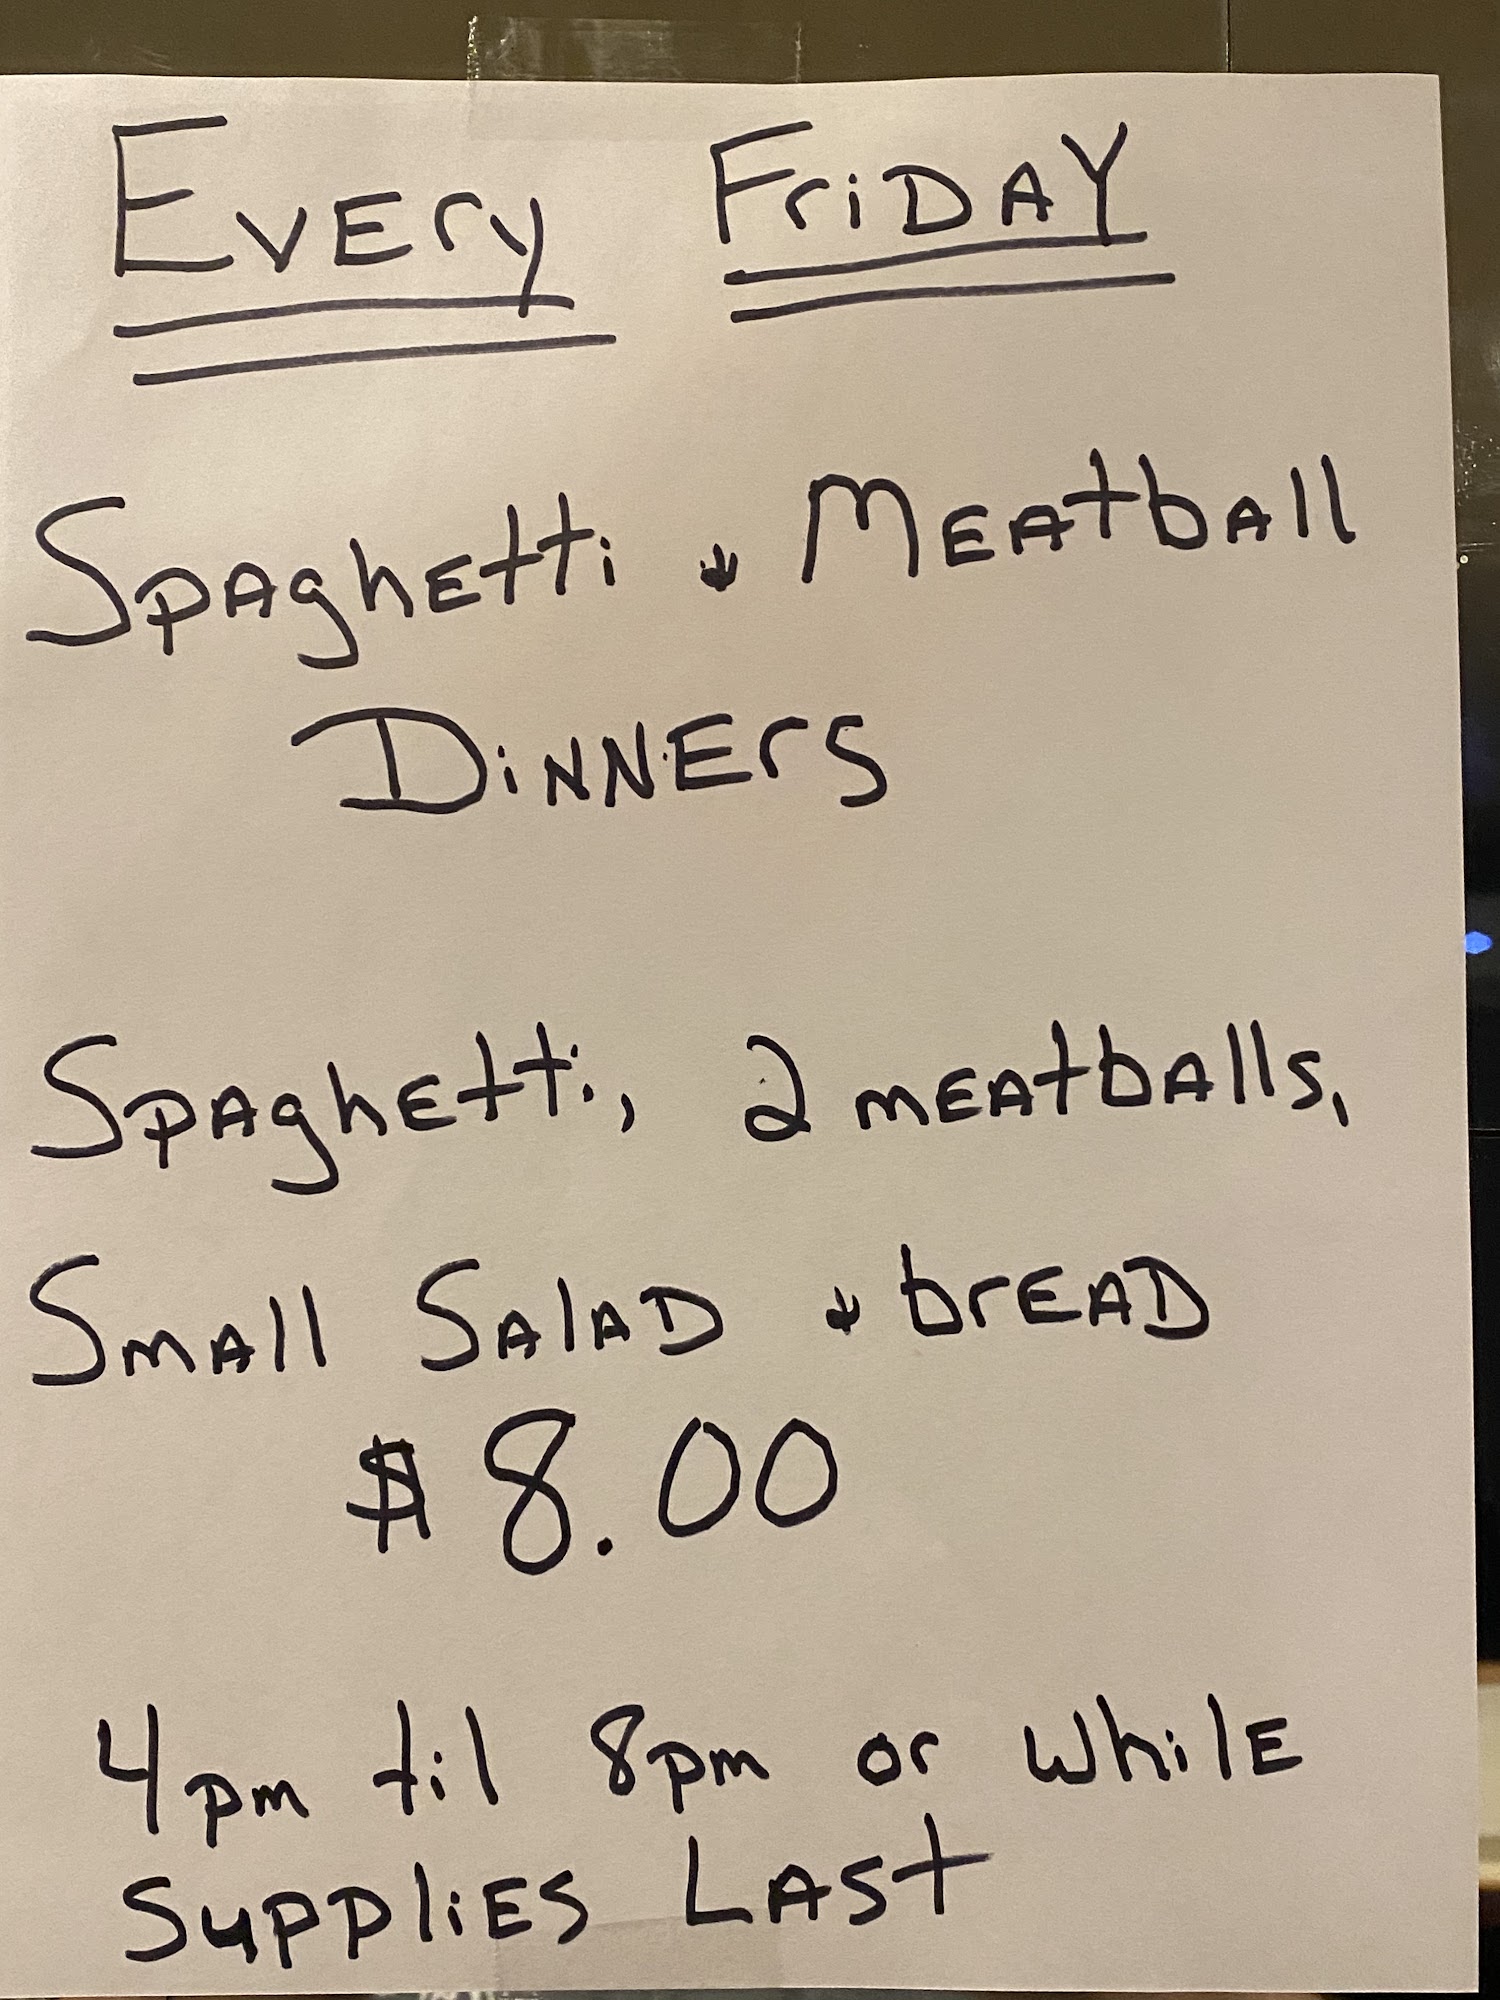 Every Friday
Spaghetti & Meatball
Dinners
Spaghetti, 2 meatballs,
Small Salad & bread
$8.00
4pm til 8pm or while
supplies Last